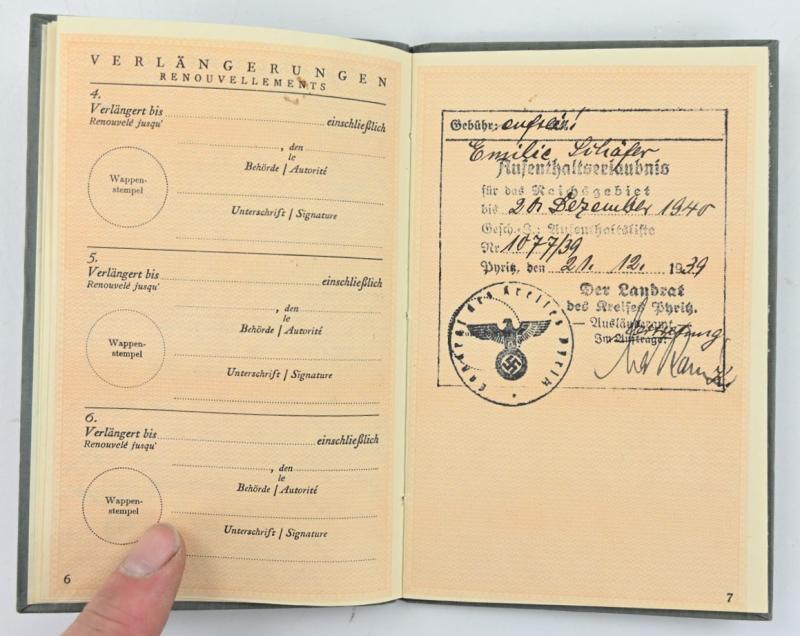 VERLÄNGERUNGEN
RENOUVELLEMENTS
4.
Verlängert bis einschließlich
Renouvelé jusqu'
, den
le
Wappen-
stempel
Behörde / Autorité
Unterschrift / Signature
5.
Verlängert bis einschließlich
Renouvelé jusqu'
, den
le
Wappen-
stempel
Behörde / Autorité
Unterschrift / Signature
6.
Verlängert bis einschließlich
Renouvelé jusqu'
, den
le
Wappen-
stempel
Behörde / Autorité
Unterschrift / Signature
6
Gebühr:
Emilie Schäfer
Aufenthaltserlaubnis
für das Reichsgebiet
bis 20 Dezember 1940
Gesch.-Z.: Aufenthaltsliste
Nr 1077/39
Pyritz, den 21. 12. 1939
Der Landrat
des Kreises Pyritz.
— Ausländeramt —
Im Auftrage:
Landrat des Kreises Pyritz
7